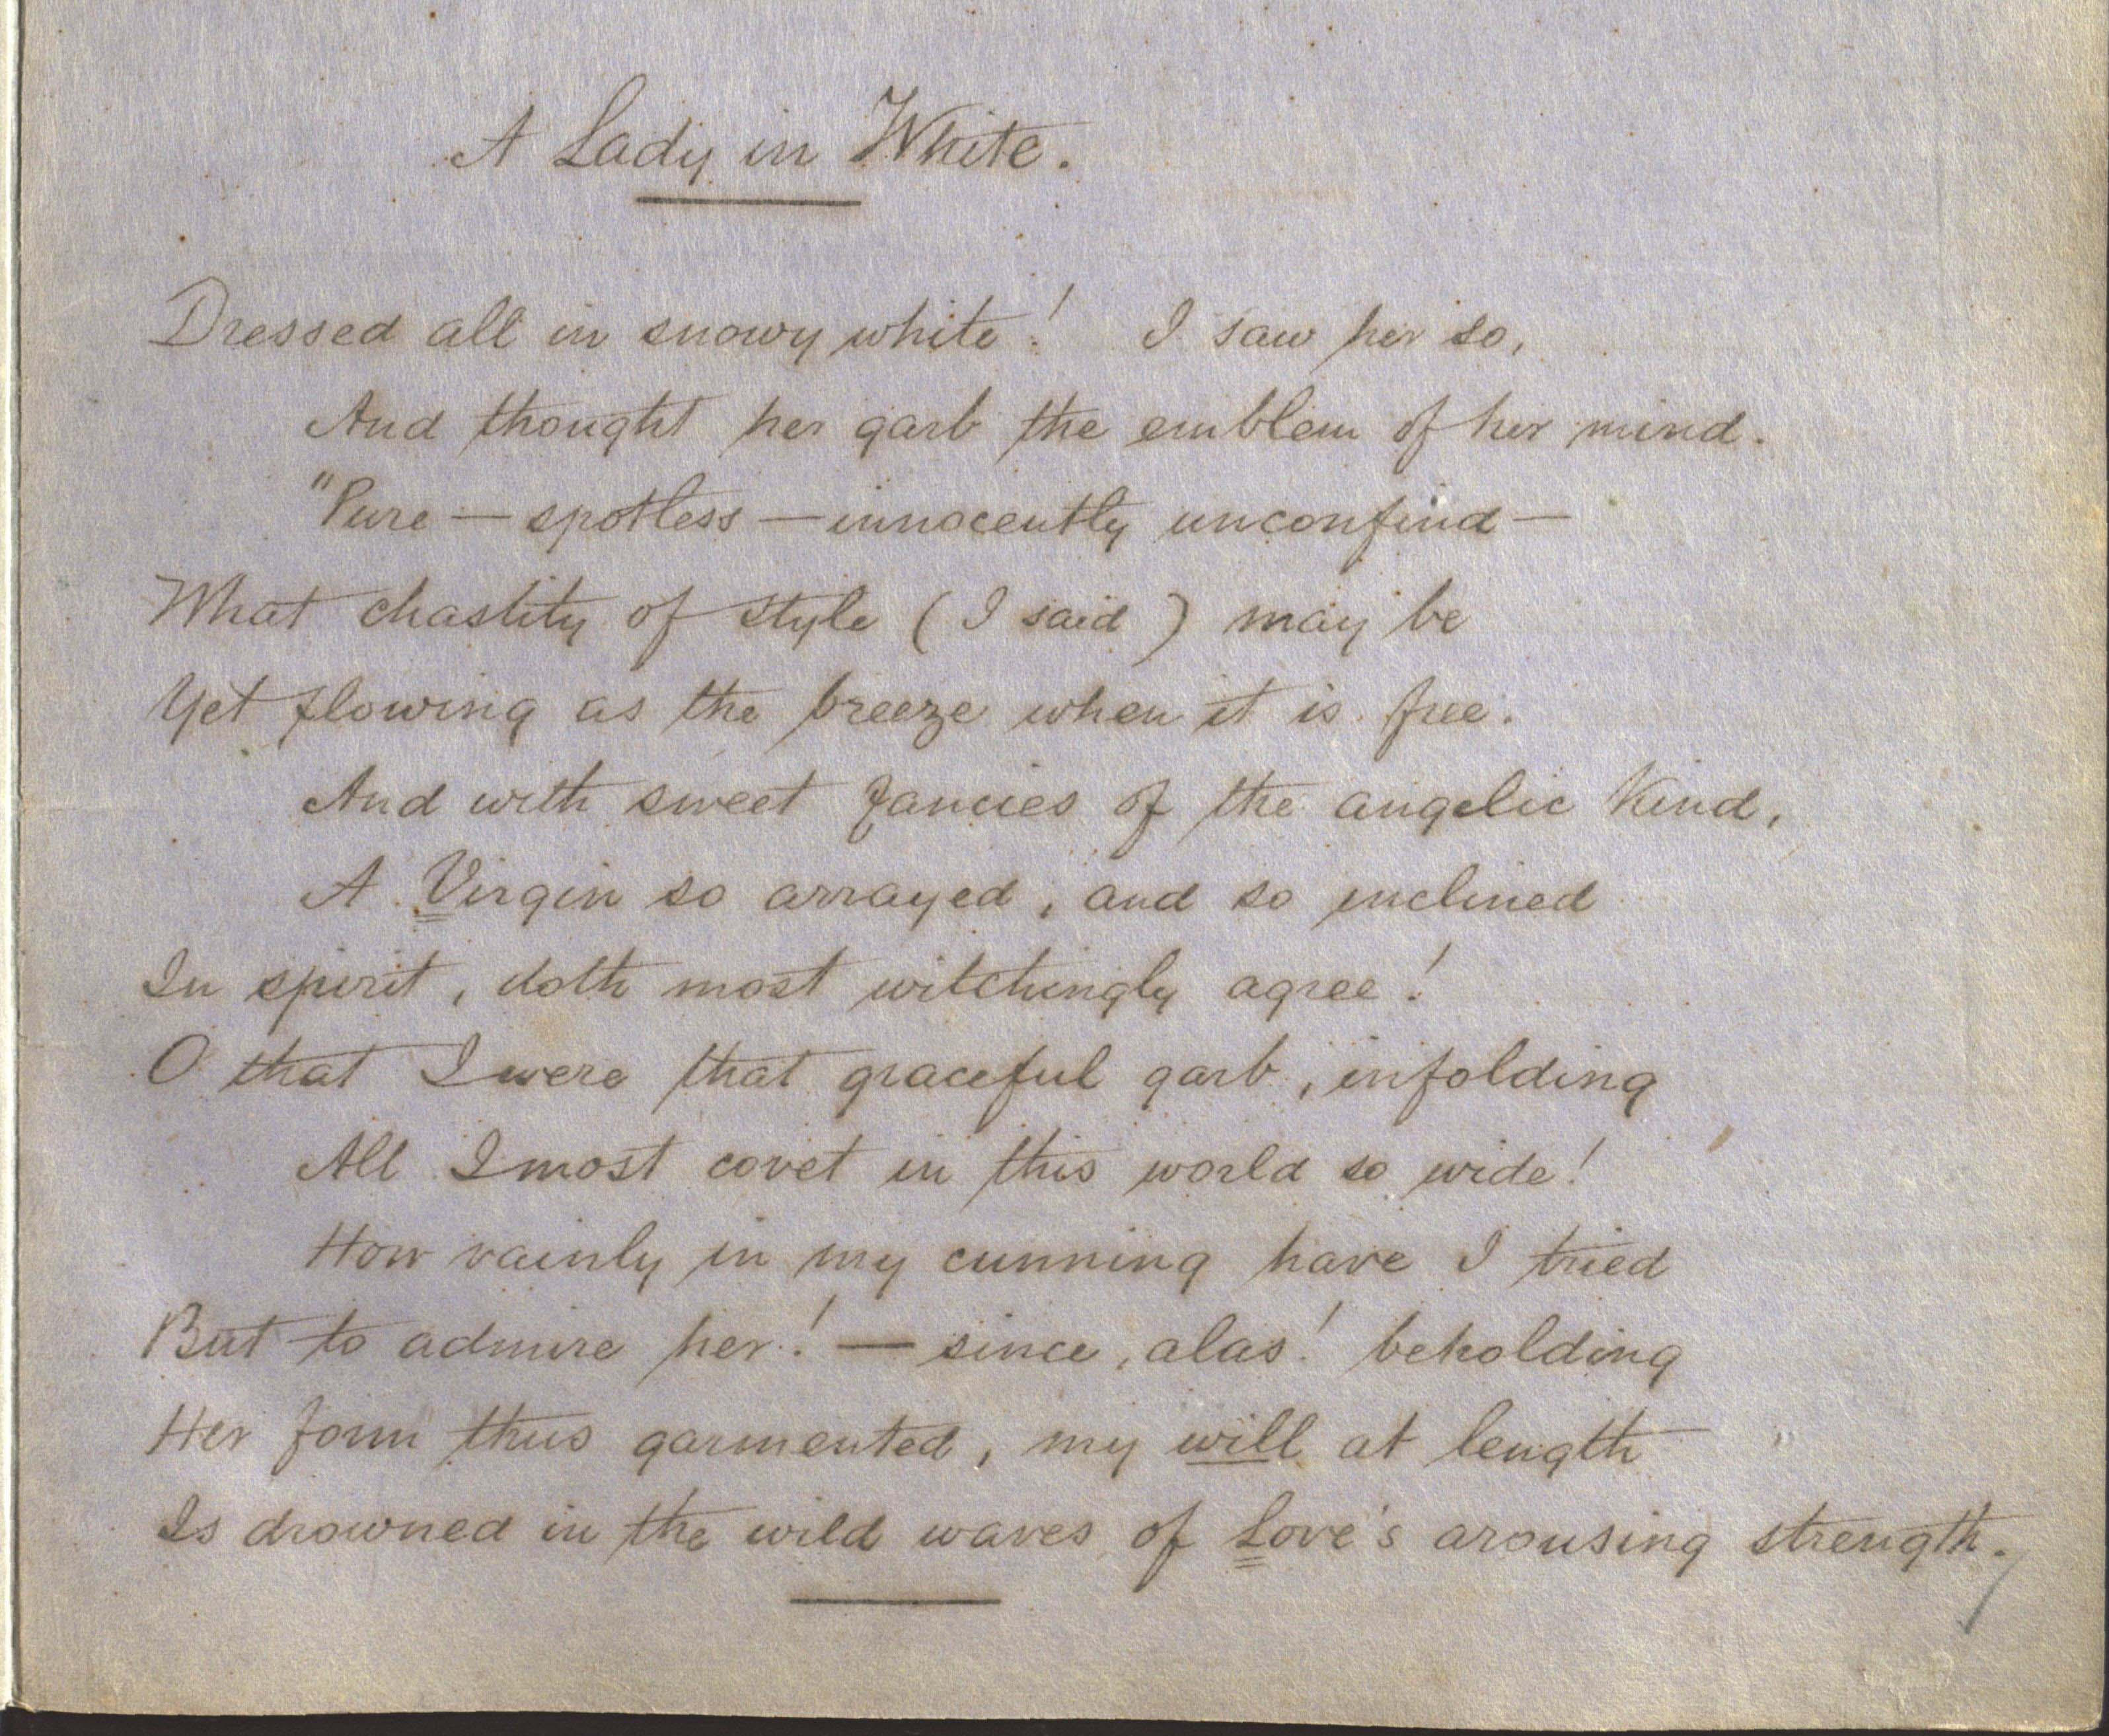 A Lady in White.
Dressed all in snowy white! I saw her so,
And thought her garb the emblem of her mind.
"Pure — spotless — innocently unconfind —
What chastity of style ( I said ) may be
Yet flowing as the breeze when it is free.
And with sweet fancies of the angelic kind,
A Virgin so arrayed, and so inclined
In spirit, doth most witchingly agree!
O that I were that graceful garb, infolding
All I most covet in this world so wide!
How vainly in my cunning have I tried
But to admire her! — since, alas! beholding
Her form thus garmented, my will at length
Is drowned in the wild waves of Love's arousing strength.